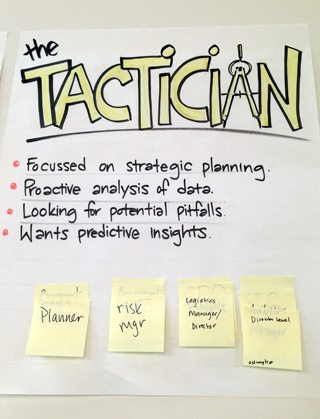 the
TACTICIAN
Focussed on strategic planning.
Proactive analysis of data.
Looking for potential pitfalls.
Wants predictive insights.
Planner
risk
mgr
Logistics
Manager/
Director
Director Level